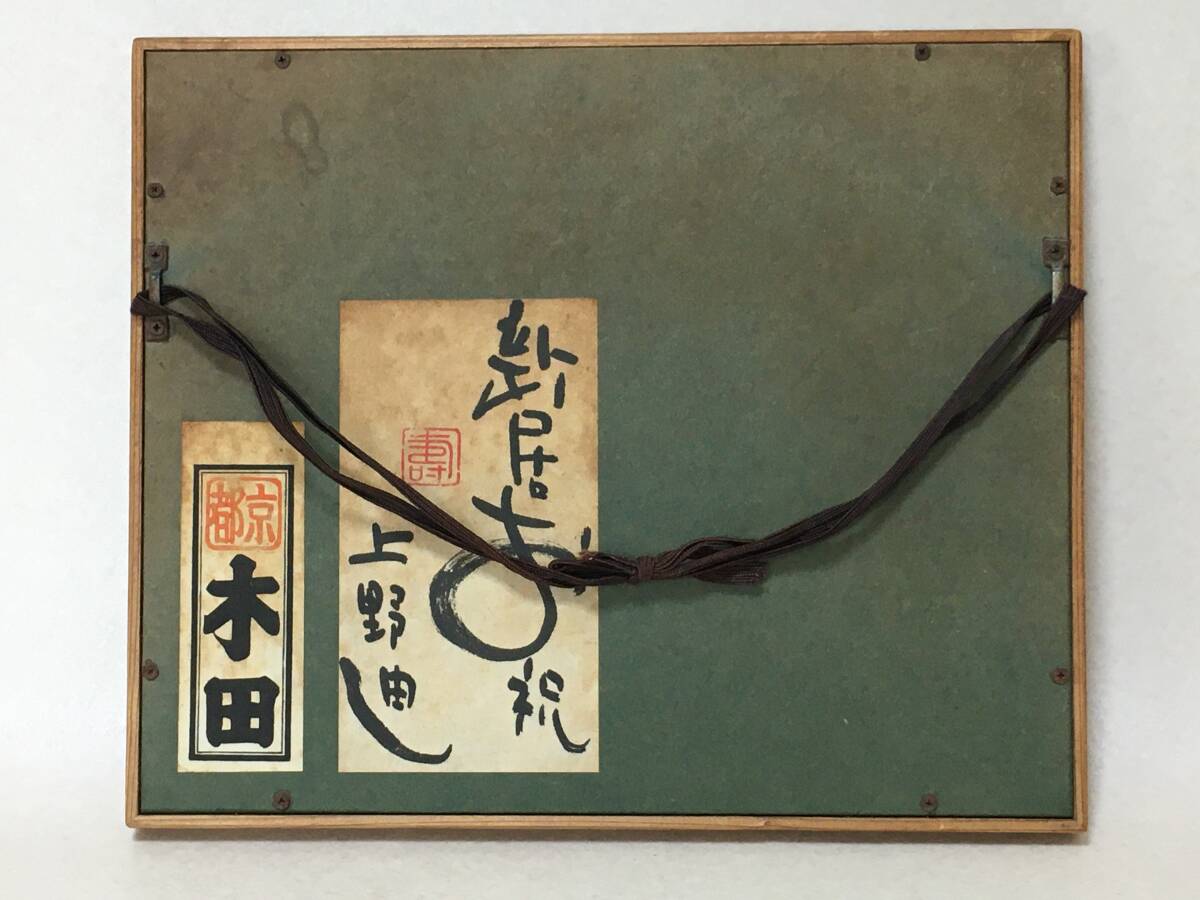 新居
祝
壽
上野迪
京都
木田